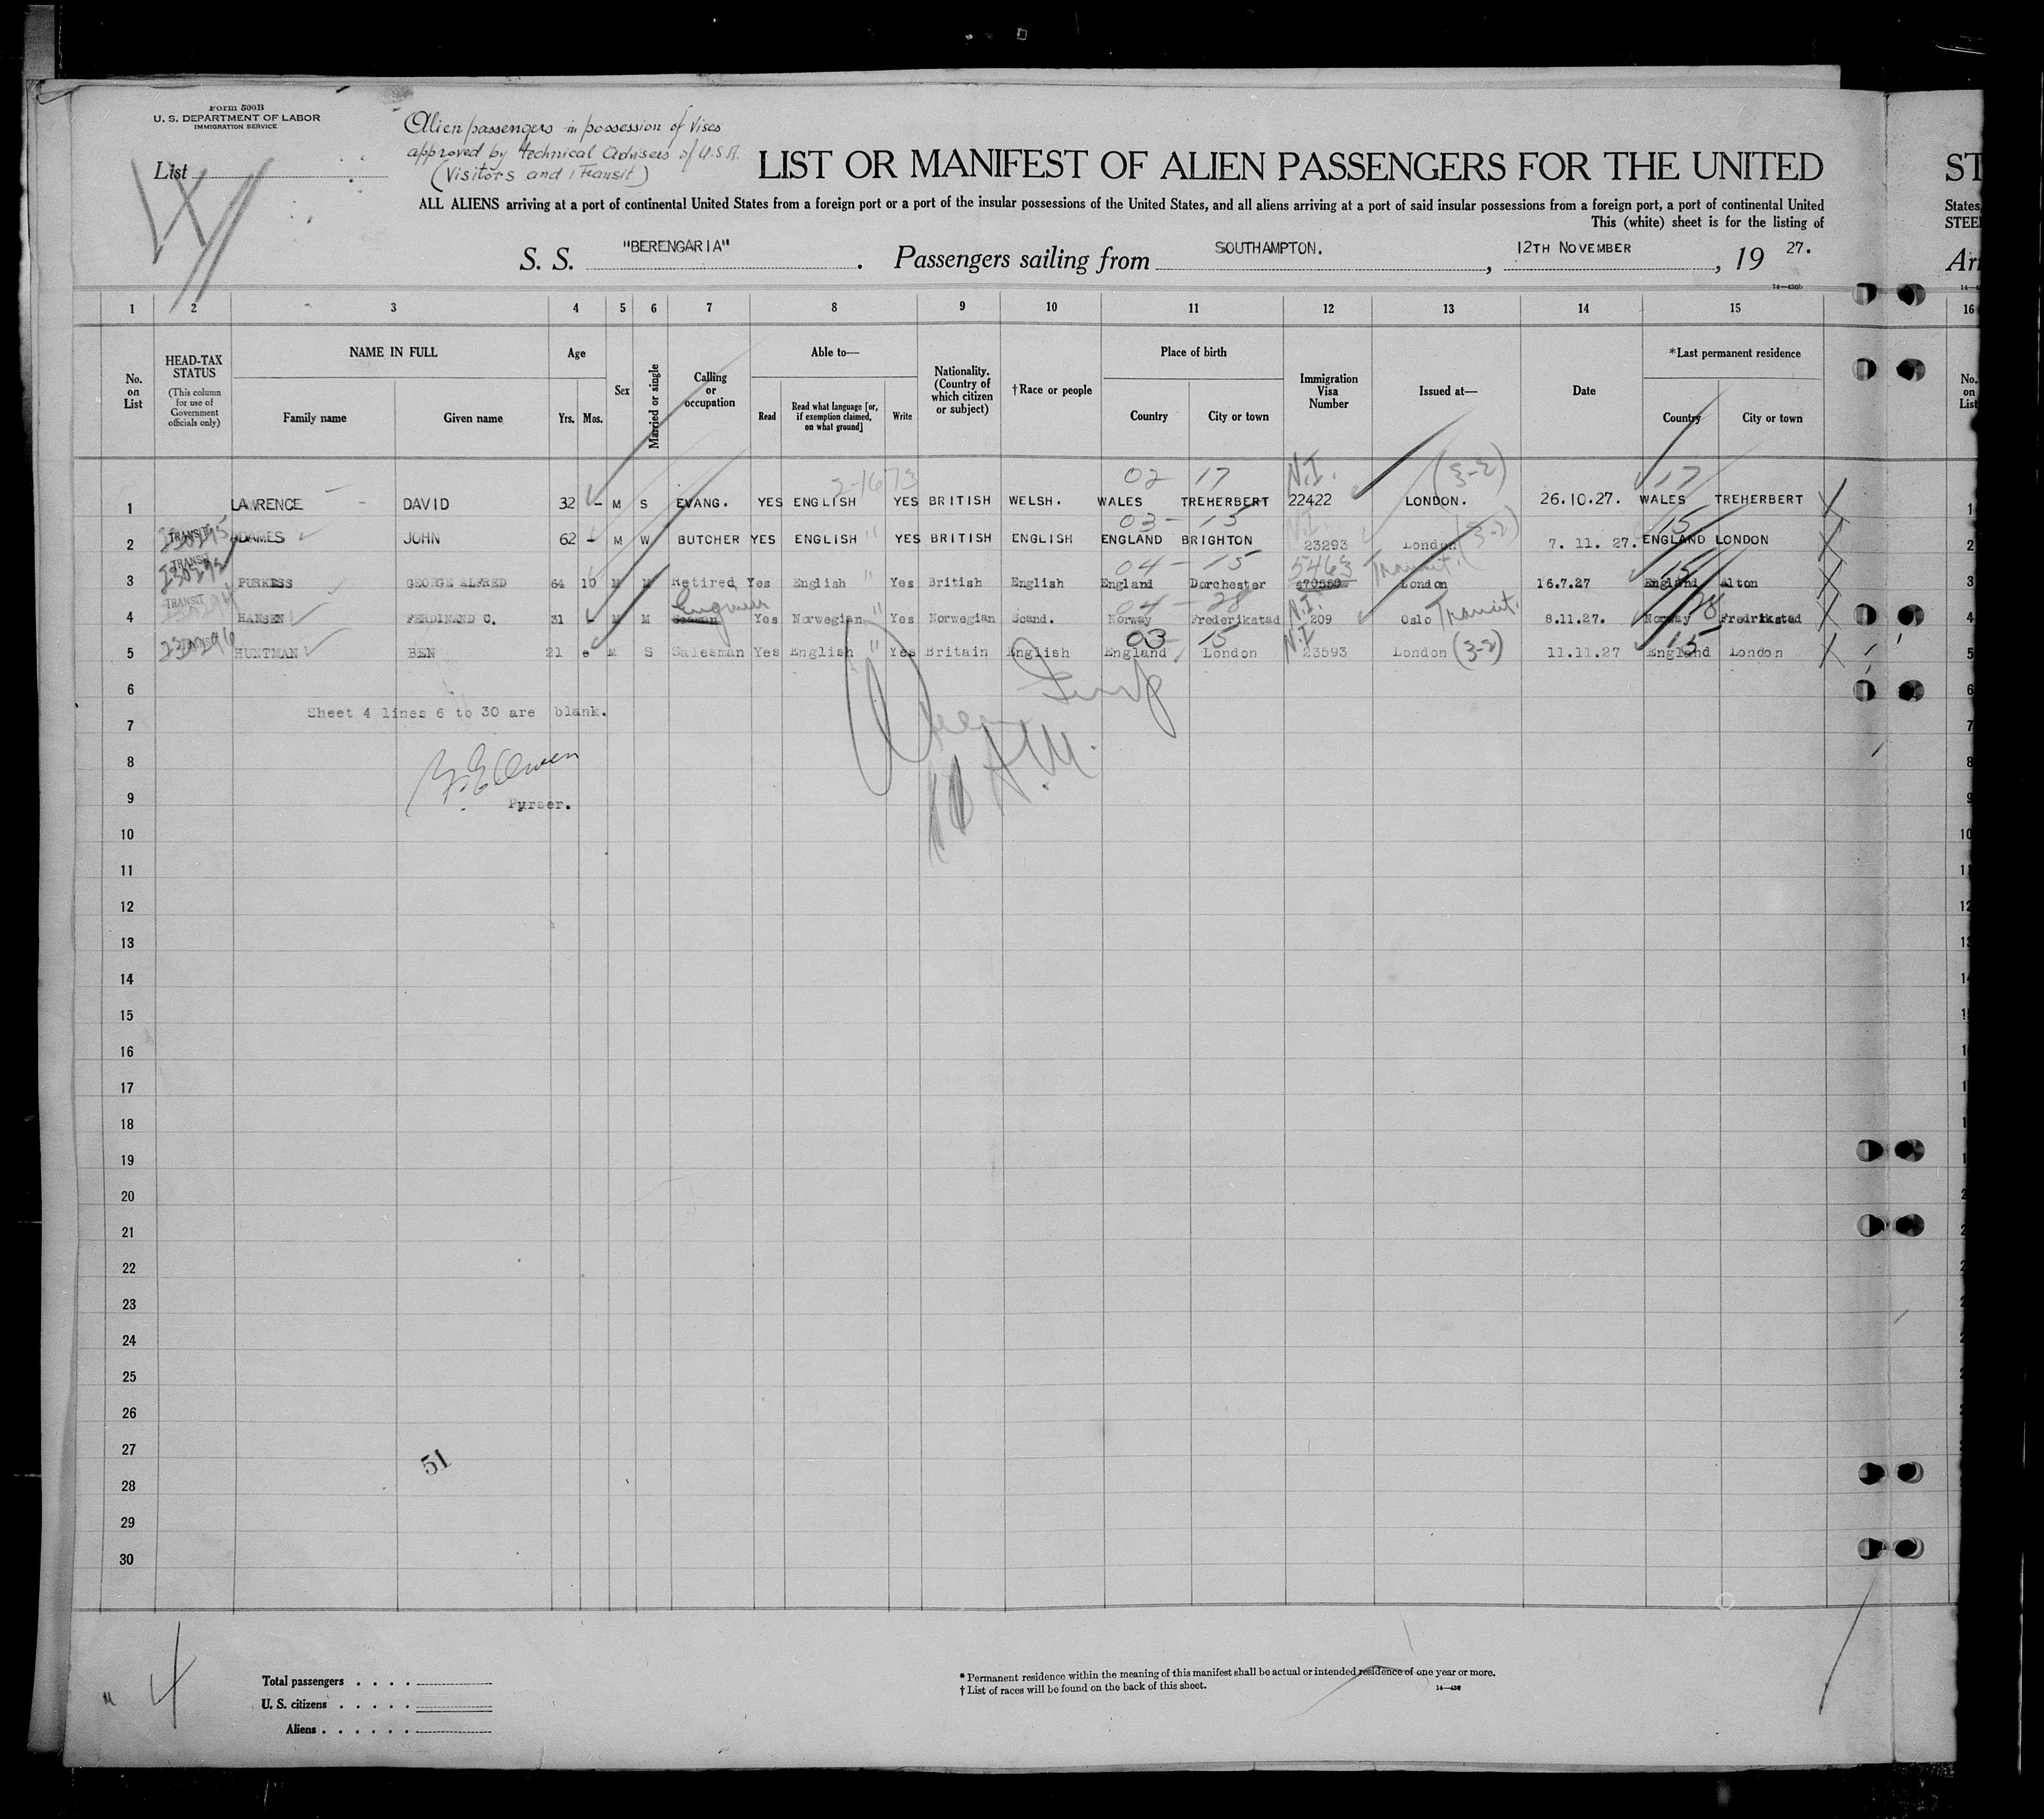 Form 500B
U. S. DEPARTMENT OF LABOR
IMMIGRATION SERVICE
List
Alien passengers in possession of Visas
approved by technical Advisers of U.S.A.
(Visitors and Transit)
LIST OR MANIFEST OF ALIEN PASSENGERS FOR THE UNITED
ST
ALL ALIENS arriving at a port of continental United States from a foreign port or a port of the insular possessions of the United States, and all aliens arriving at a port of said insular possessions from a foreign port, a port of continental United
States,
This (white) sheet is for the listing of
STEE
S. S. "BERENGARIA" . Passengers sailing from SOUTHAMPTON. , 12TH NOVEMBER , 19 27.
Arr
1 2 3 4 5 6 7 8 9 10 11 12 13 14 15 16
No. on List
HEAD-TAX STATUS
(This column for use of Government officials only)
NAME IN FULL
Family name
Given name
Age
Yrs. Mos.
Sex
Married or single
Calling or occupation
Able to—
Read
Read what language [or, if exemption claimed, on what ground]
Write
Nationality. (Country of which citizen or subject)
†Race or people
Place of birth
Country
City or town
Immigration Visa Number
Issued at—
Date
*Last permanent residence
Country
City or town
No. on List
2-1673 02 17 N.I. (3-2) 17
1 LAWRENCE DAVID 32 - M S EVANG. YES ENGLISH YES BRITISH WELSH. WALES TREHERBERT 22422 LONDON. 26.10.27. WALES TREHERBERT 1
TRANSIT 03 - 15 N.I. (3-2) 15
2 ADAMES JOHN 62 - M W BUTCHER YES ENGLISH " YES BRITISH ENGLISH ENGLAND BRIGHTON 23293 London 7. 11. 27. ENGLAND LONDON 2
TRANSIT 04 - 15 5463 Transit. 15
3 PURKESS GEORGE ALFRED 64 10 M M Retired Yes English " Yes British English England Dorchester London 16.7.27 England Alton 3
TRANSIT Engineer 04 - 28 N.I. Transit. 28
4 HANSEN FERDINAND C. 31 - M M Seaman Yes Norwegian " Yes Norwegian Scand. Norway Frederikstad 209 Oslo 8.11.27. Norway Fredrikstad 4
230296 03 15 N.I. (3-2) 15
5 HUNTMAN BEN 21 e M S Salesman Yes English " Yes Britain English England London 23593 London 11.11.27 England London 5
6 6
Sheet 4 lines 6 to 30 are blank.
7 7
8 8
9 Purser. 9
10 10
11 11
12 12
13 13
14 14
15
16
17
18
19
20
21
22
23
24
25
26
27
51
28
29
30
4
Total passengers . . . .
U. S. citizens . . . . .
Aliens . . . . . .
* Permanent residence within the meaning of this manifest shall be actual or intended residence of one year or more.
† List of races will be found on the back of this sheet.